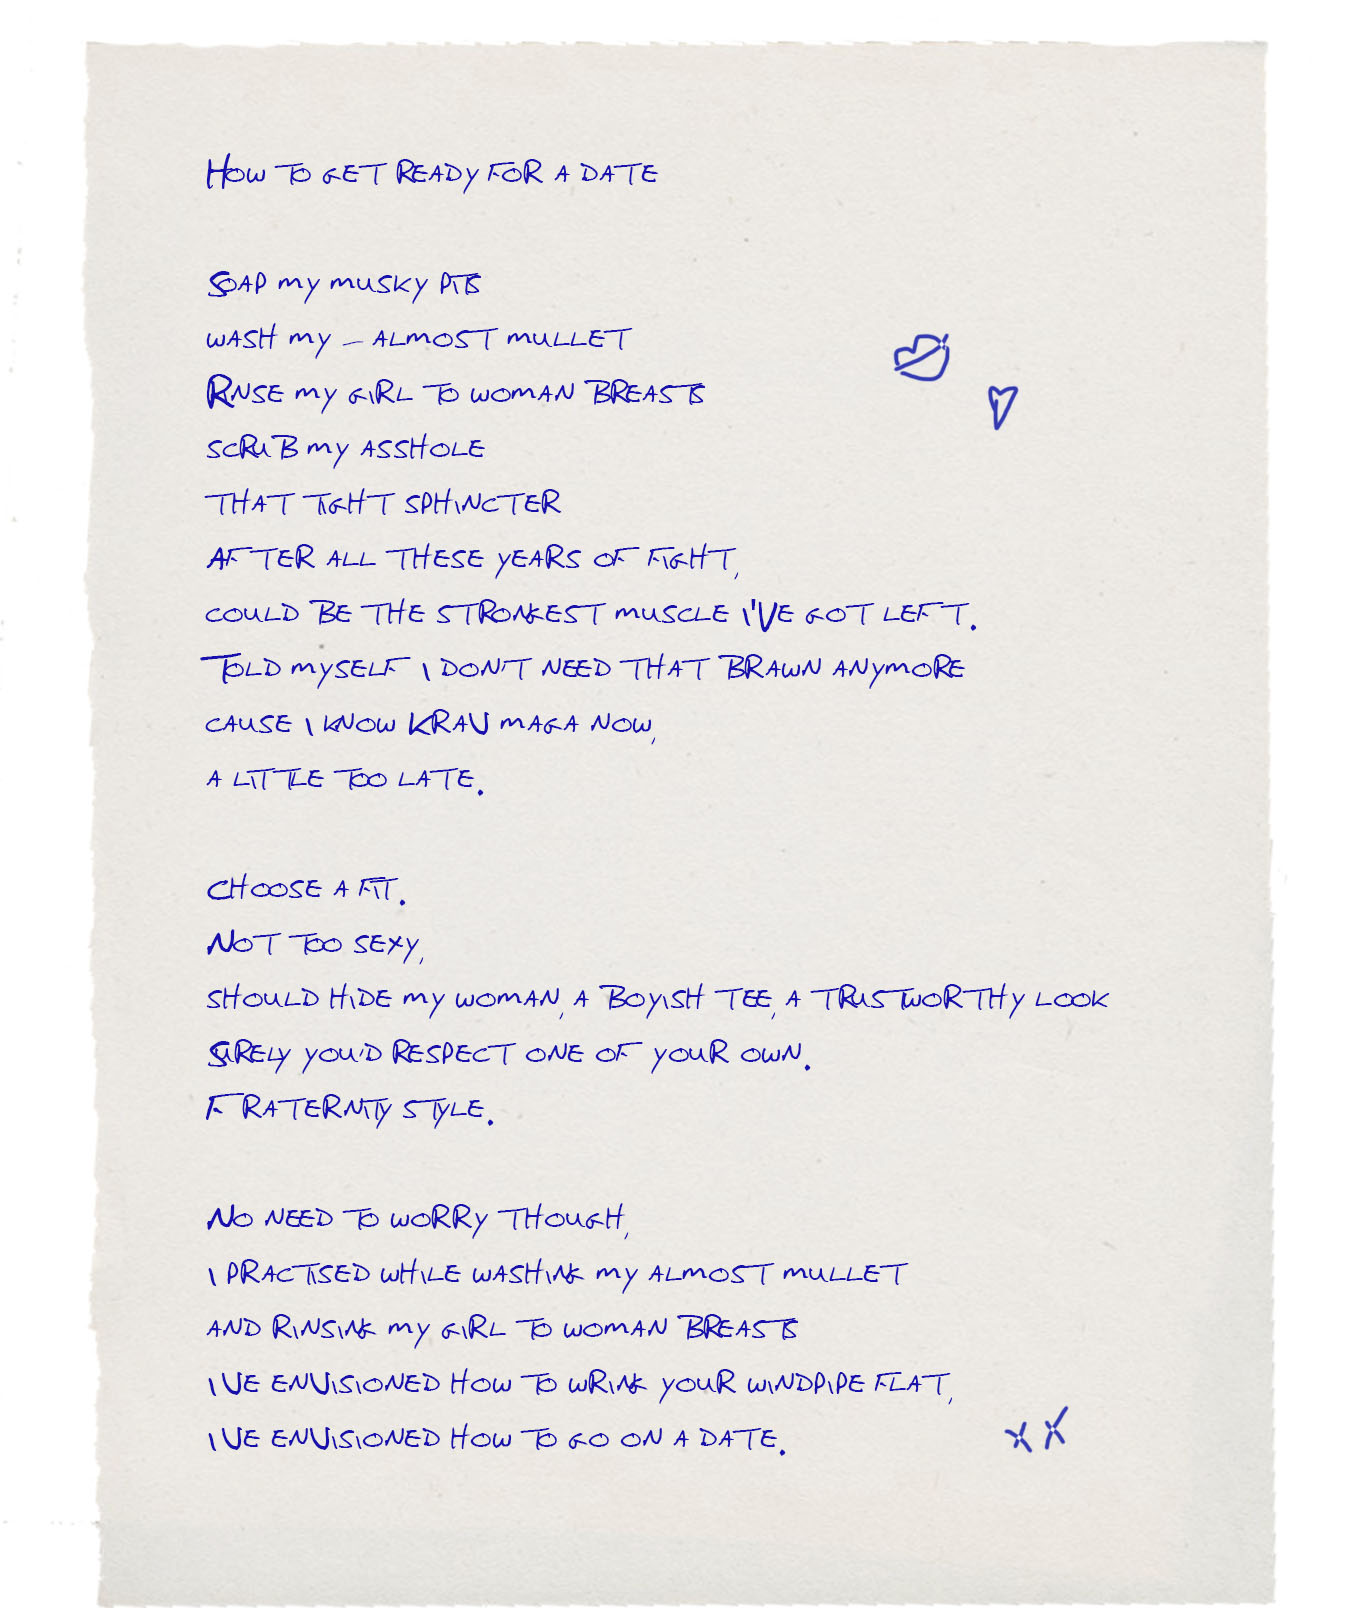 HOW TO GET READY FOR A DATE
SOAP MY MUSKY PITS
WASH MY – ALMOST MULLET
RINSE MY GIRL TO WOMAN BREASTS
SCRUB MY ASSHOLE
THAT TIGHT SPHINCTER
AFTER ALL THESE YEARS OF FIGHT,
COULD BE THE STRONGEST MUSCLE I'VE GOT LEFT.
TOLD MYSELF I DON'T NEED THAT BRAWN ANYMORE
CAUSE I KNOW KRAV MAGA NOW,
A LITTLE TOO LATE.
CHOOSE A FIT.
NOT TOO SEXY,
SHOULD HIDE MY WOMAN, A BOYISH TEE, A TRUSTWORTHY LOOK
SURELY YOU'D RESPECT ONE OF YOUR OWN.
FRATERNITY STYLE.
NO NEED TO WORRY THOUGH,
I PRACTISED WHILE WASHING MY ALMOST MULLET
AND RINSING MY GIRL TO WOMAN BREASTS
I'VE ENVISIONED HOW TO WRING YOUR WINDPIPE FLAT,
I'VE ENVISIONED HOW TO GO ON A DATE.
XX